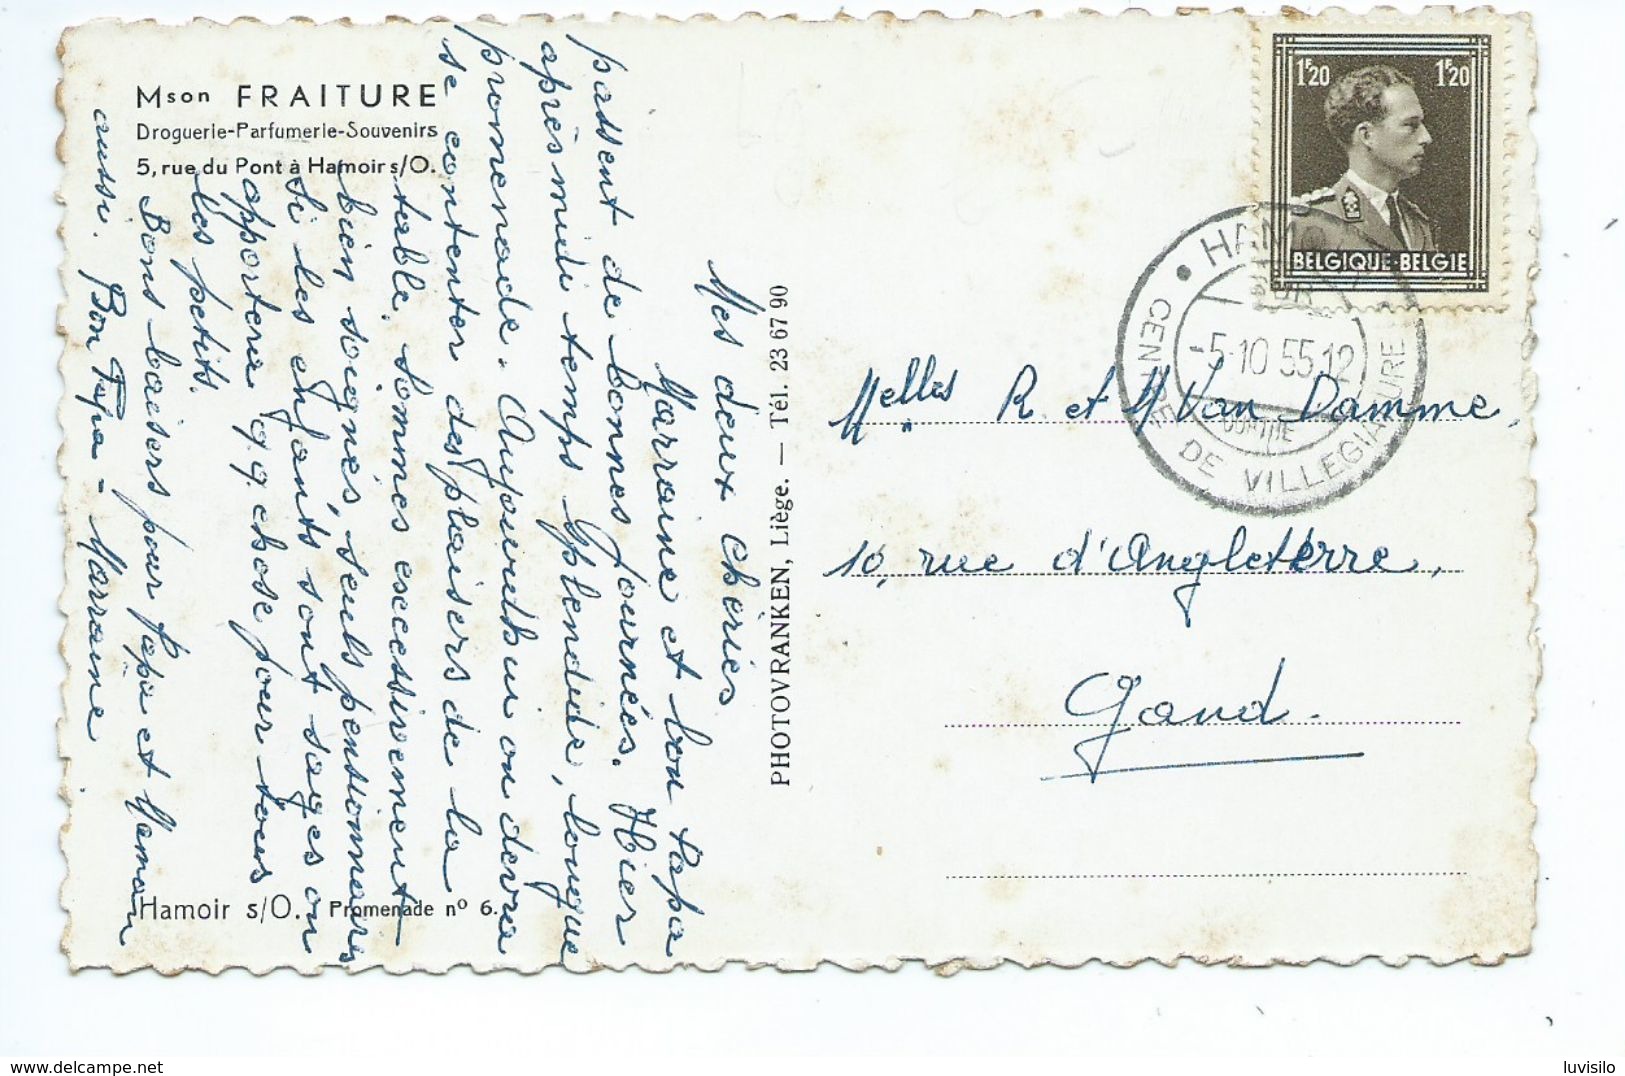 Mson FRAITURE
Droguerie-Parfumerie-Souvenirs
5, rue du Pont à Hamoir s/O.
Mes deux chéries
Marraine et bon Papa
passent de bonnes journées. Hier
après midi temps splendide, longue
promenade. Aujourd'hui on devra
se contenter des plaisirs de la
table. Sommes excessivement
bien soignés, seuls pensionnaires
Si les enfants sont sages on
apportera qq. chose pour tous
les petits.
Bons baisers pour Papa et Maman
aussi. Bon Papa - Marraine
Hamoir s/O. Promenade nº 6.
PHOTOVRANKEN, Liège. — Tél. 23 67 90
1F20 1F20
BELGIQUE-BELGIE
HAMO
SUR
-5-10 55.12
OURTHE
CENTRE DE VILLEGIATURE
Melles R. et M Van Damme,
10, rue d'Angleterre,
Gand.
luvisilo